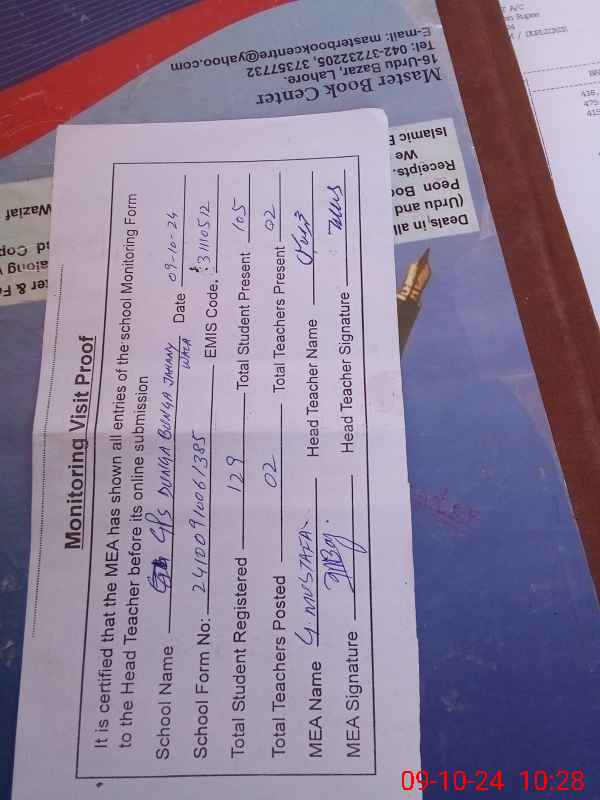 Monitoring Visit Proof
It is certified that the MEA has shown all entries of the school Monitoring Form
to the Head Teacher before its online submission
School Name GPS DUNGA BUNGA JAHANY WALA Date 09-10-24
School Form No: 24100910061385 EMIS Code. 31110512
Total Student Registered 129 Total Student Present 105
Total Teachers Posted 02 Total Teachers Present 02
MEA Name G. MUSTAFA Head Teacher Name
MEA Signature Head Teacher Signature
Master Book Center
16-Urdu Bazar, Lahore.
Tel: 042-37232205, 37357732
E-mail: masterbookcentre@yahoo.com
Deals in all
(Urdu and
Peon Boo
Receipts.
We
Islamic
Waziaf
nd Cop
along
ter & F
T A/C
en Rupee
M / DUPLICATE
438,
475
415
09-10-24 10:28